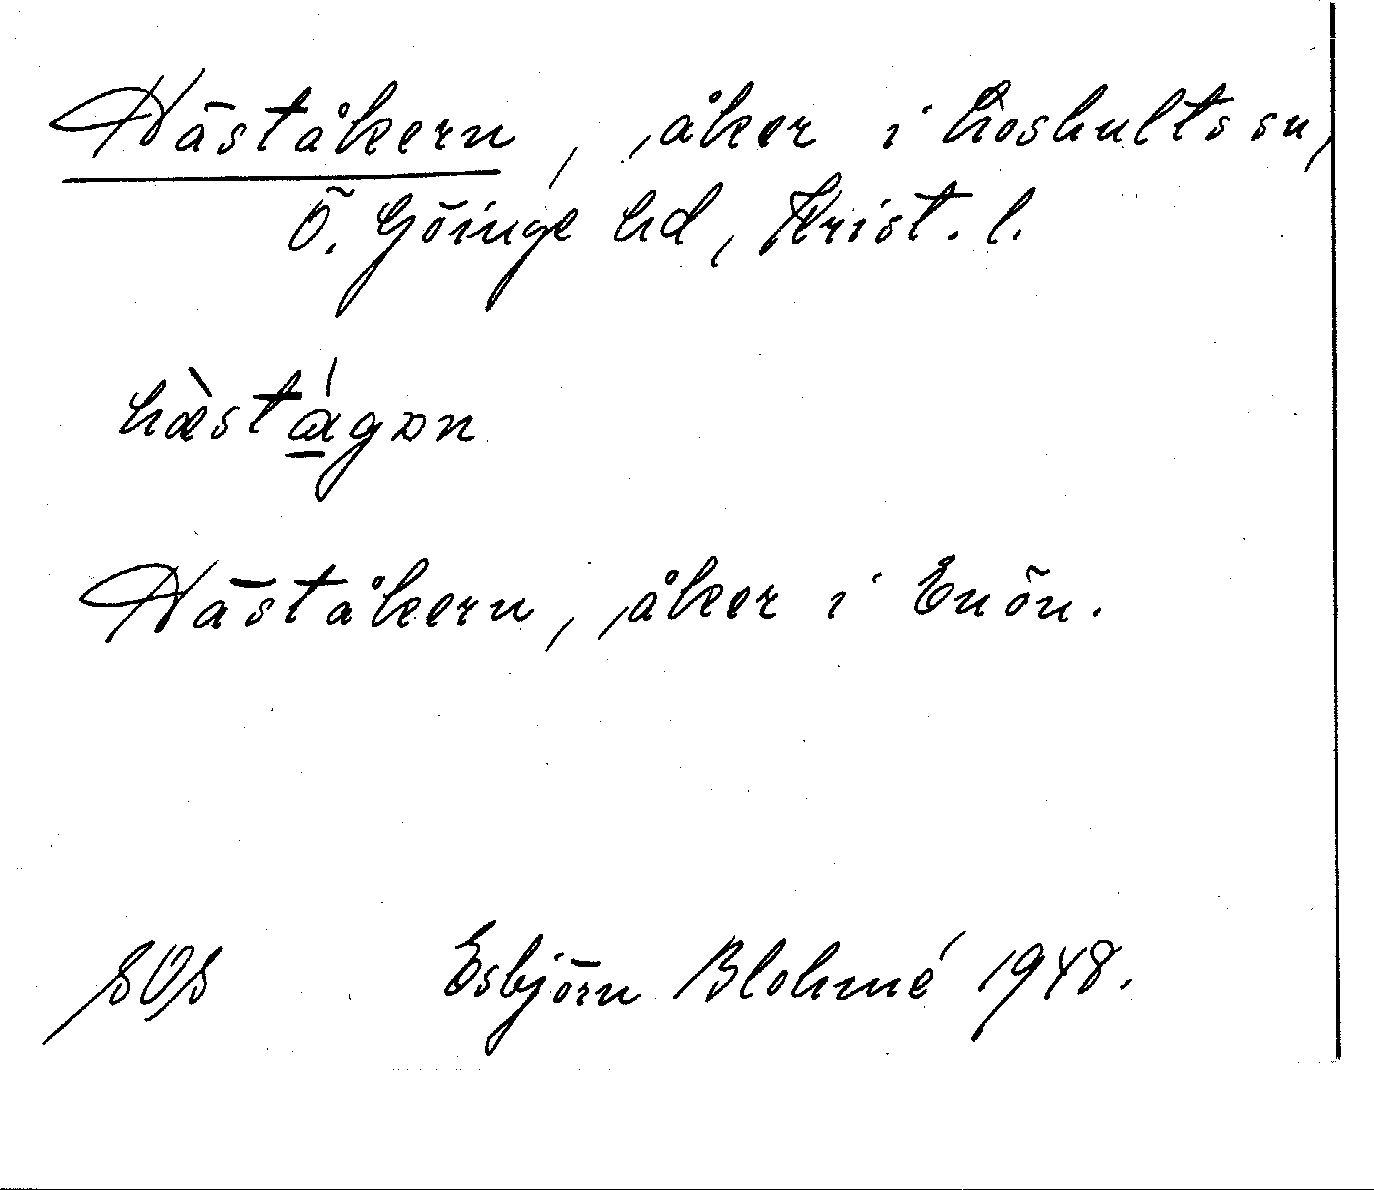 Häståkern, åker i Loshults sn,
Ö. Göinge hd, Krist. l.
hæ̀stágən
Häståkern, åker i Enön.
SOS Esbjörn Blohmé 1948.